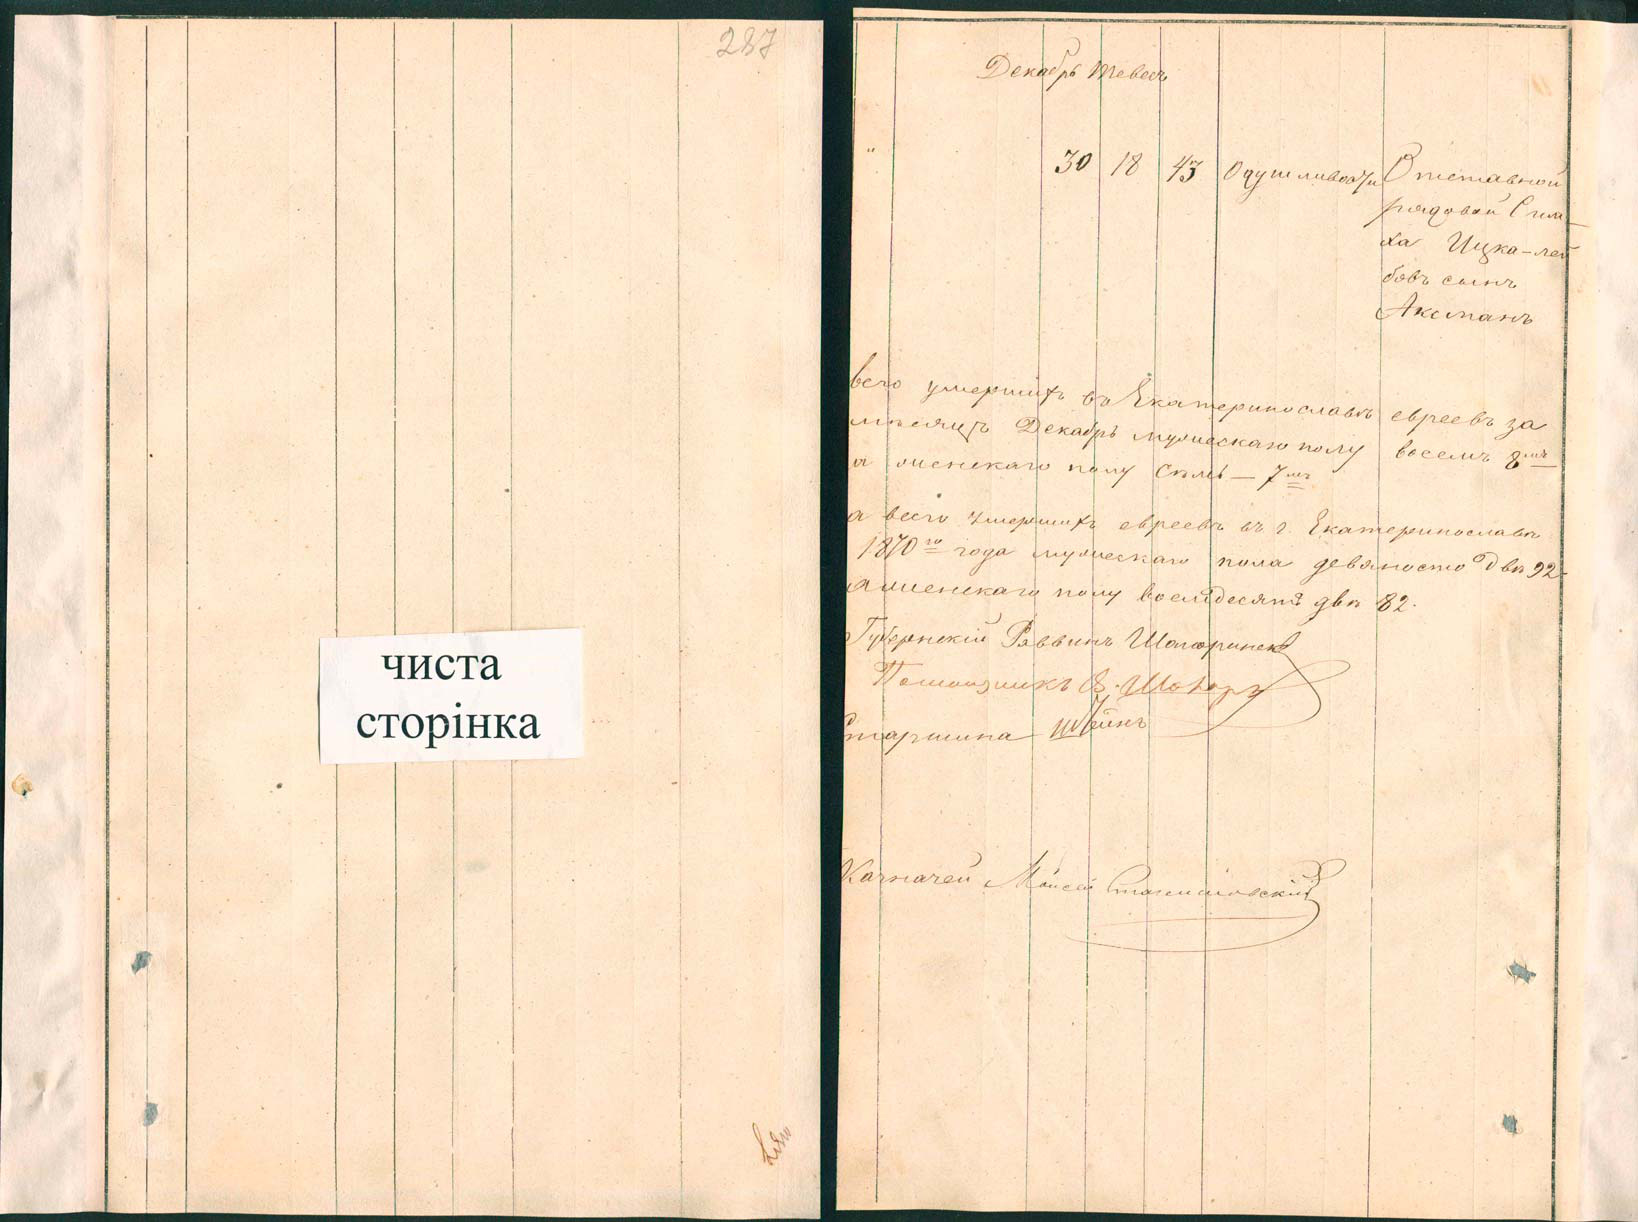 287
чиста
сторінка
Декабрь Тевес
" 30 18 43 Одушливости Отставной
рядовой Сим-
ха Ицка-лей
бовъ сынъ
Аксманъ
всего умершихъ въ Екатеринославѣ евреевъ за
мѣсяцъ Декабрь мужескаго полу восемъ 8мъ
а женскаго полу семь — 7мъ
а всего умершихъ евреевъ въ г. Екатеринославѣ
1870го года мужескаго пола девяносто два 92
а женскаго полу восемдесятъ двѣ 82.
Губернскій Раввинъ
Помощникъ
Старшина Штейнъ
Казначей Моисей